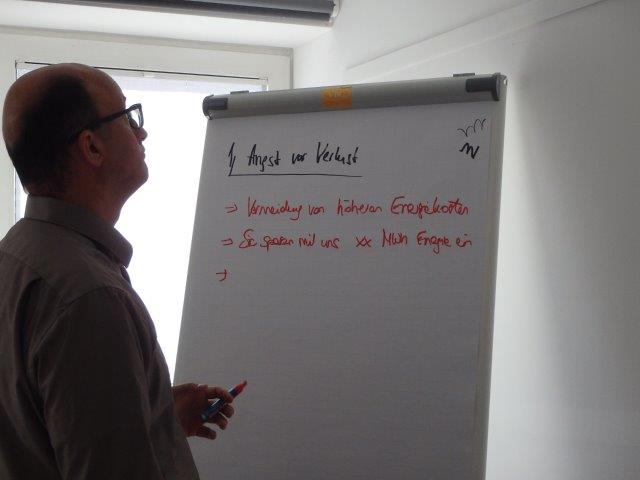 1) Angst vor Verlust
=> Vermeidung von höheren Energiekosten
=> Sie sparen mit uns xx MWh Energie ein